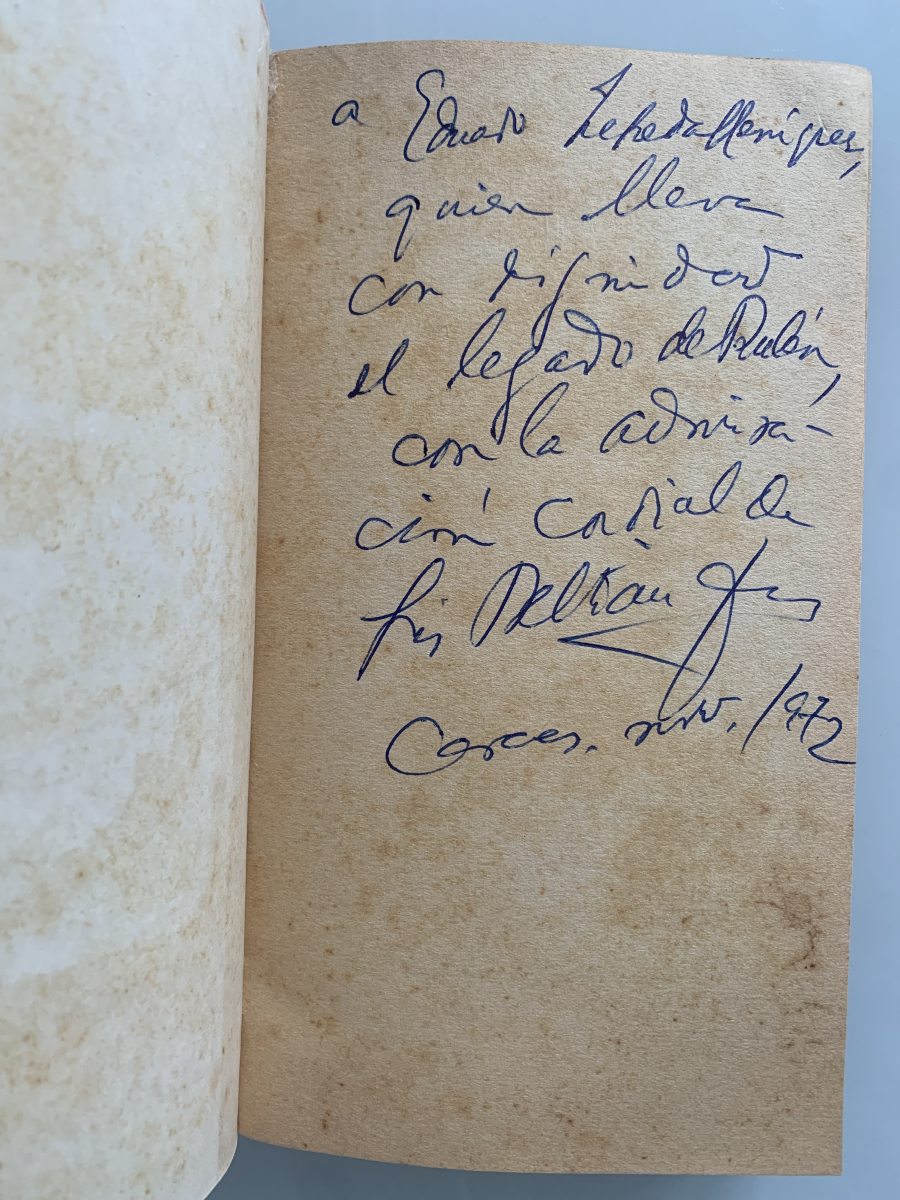 a Eduardo Zepeda Henríquez,
quien lleva
con dignidad
el legado de Rubén,
con la admira-
ción cordial de
Luis Beltrán
Caracas, nov. 1972